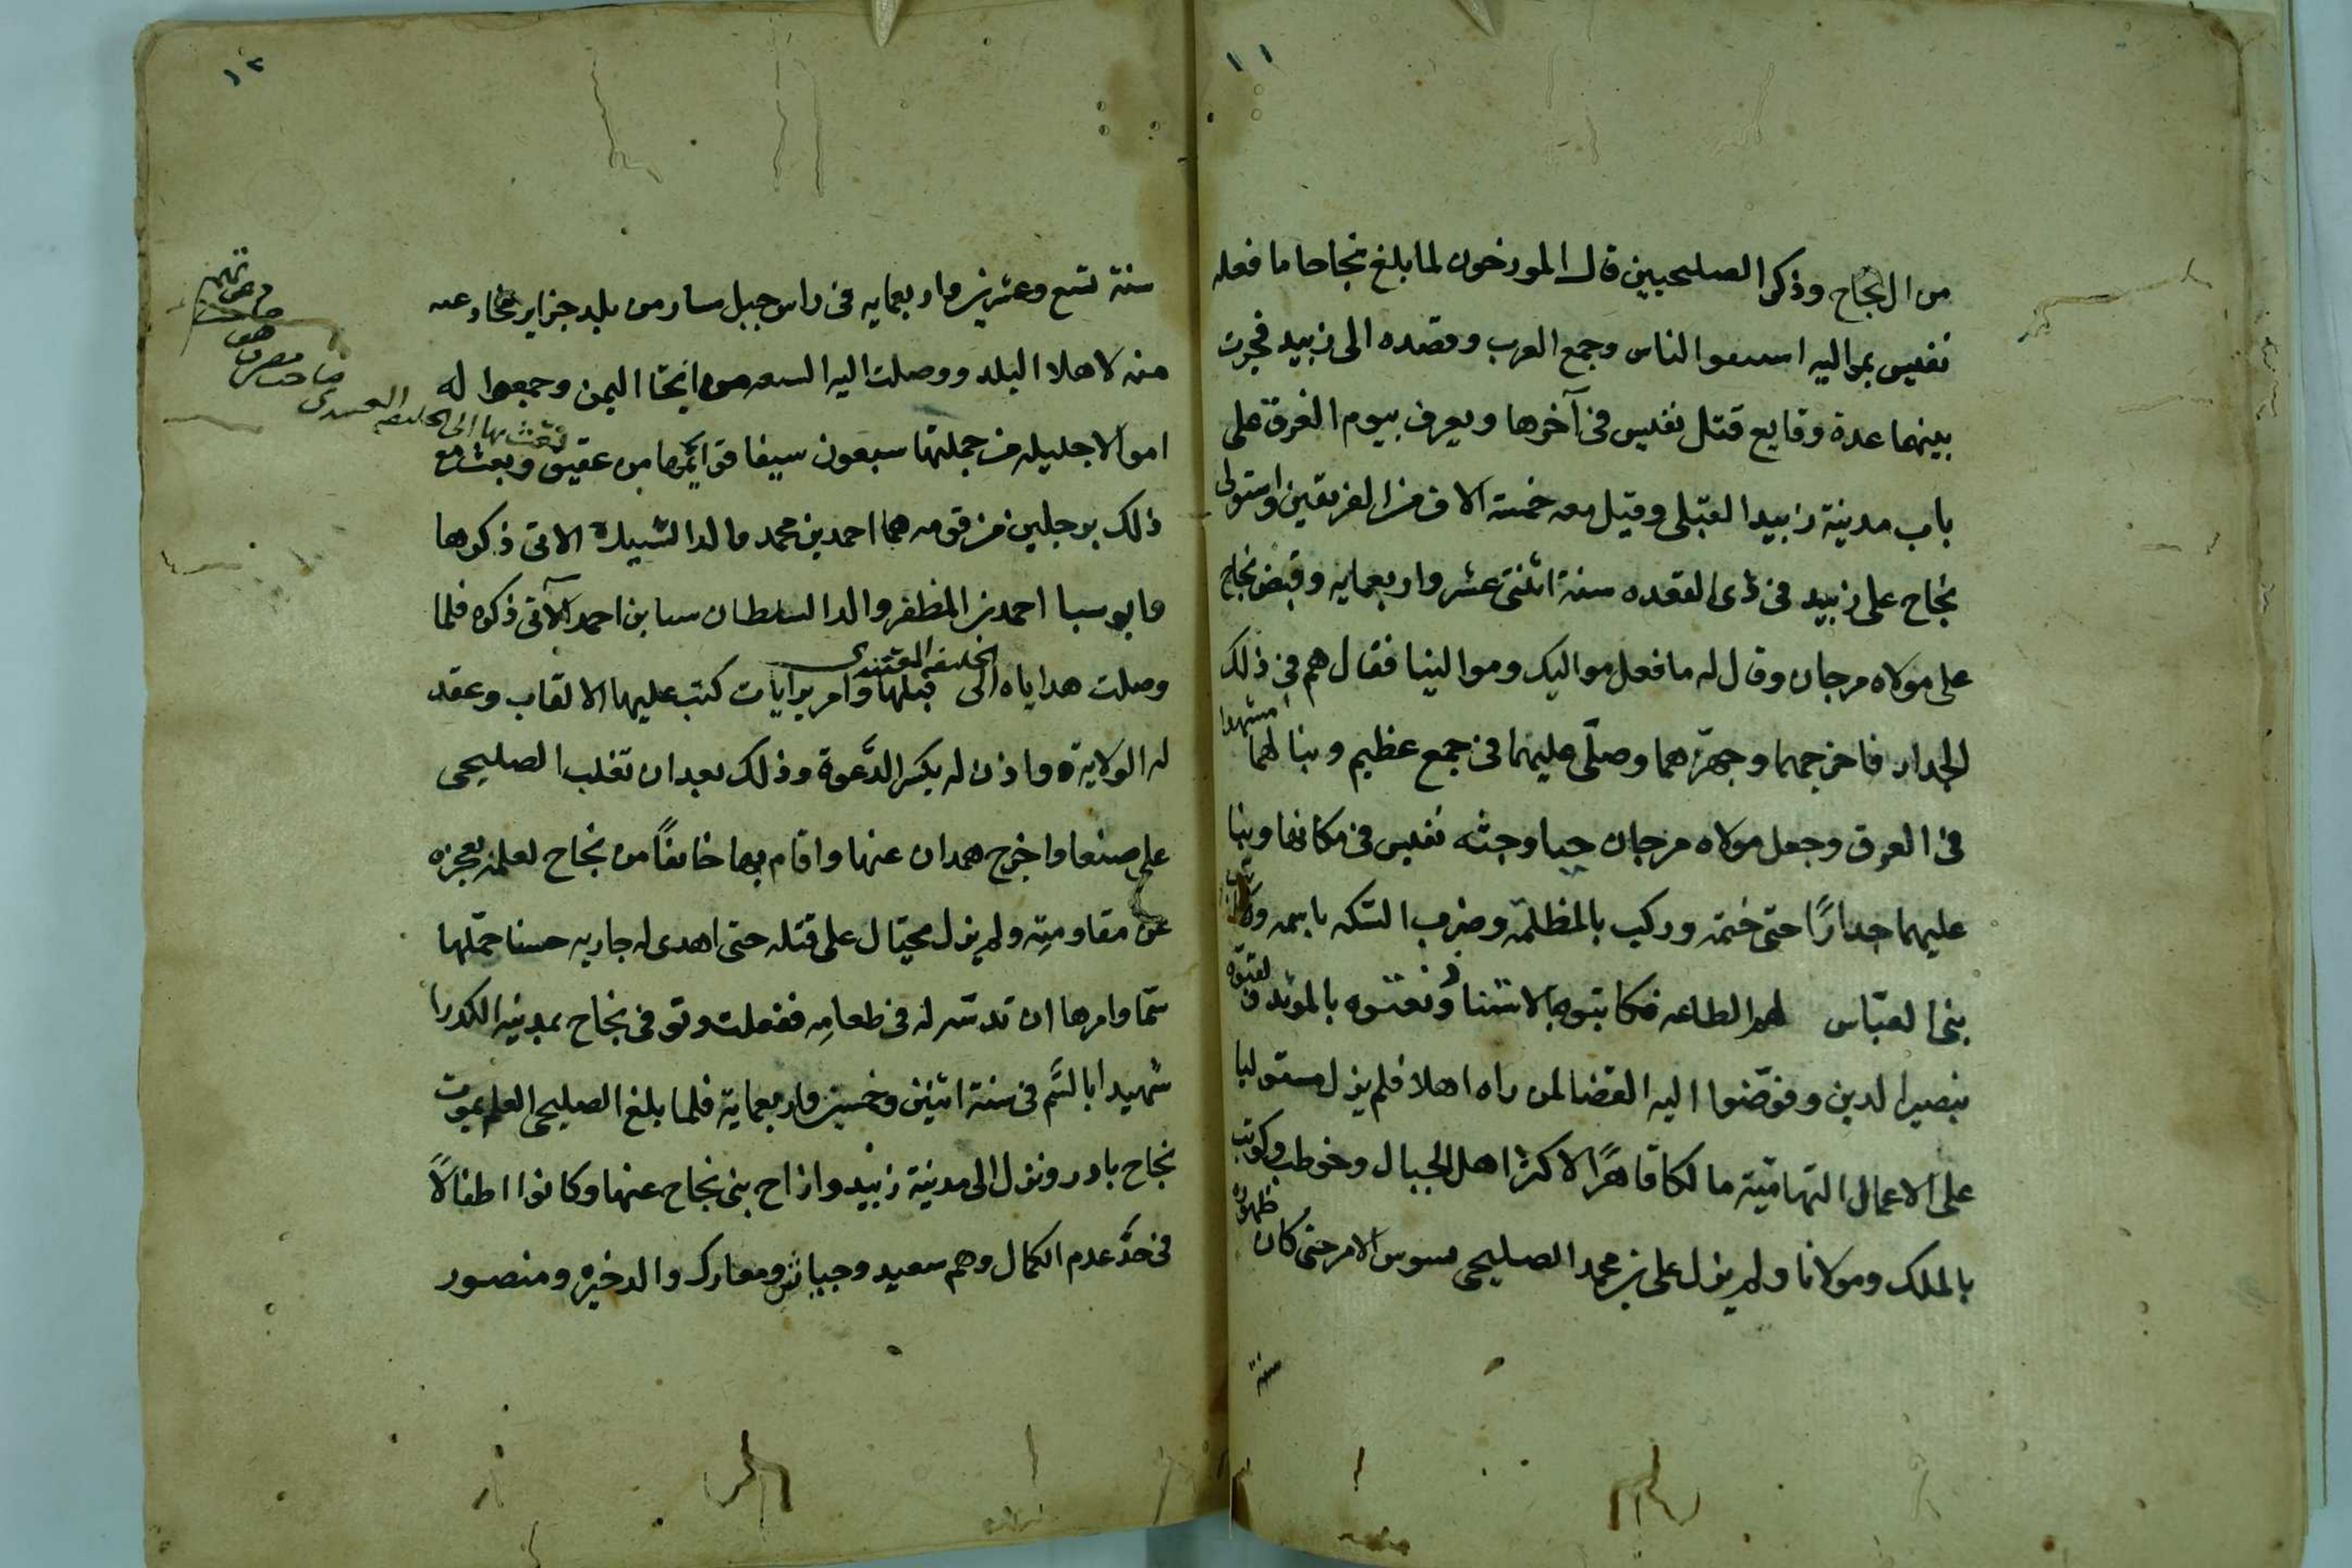 ١١
من ال نجاح وذكر الصليحيين قال المورخون لما بلغ نجاحا ما فعله
نفيس بمواليه الناس وجمع العرب وقصده الى زبيد فجرت
بينهما عدة وقايع قتل نفيس في آخرها ويعرف بيوم العرق على
باب مدينة زبيد القبلى وقيل معه خمسة الاف من الفريقين واستولى
نجاح على زبيد في ذى القعده سنة اثنتى عشر واربعمايه وقبض نجاح
على مولاه مرجان وقال له ما فعل مواليك وموالينا فقال هم في ذلك
الجدار فاخرجهما وجهزهما وصلّى عليهما في جمع عظيم وبنا لهما مشهدا
في العرق وجعل مولاه مرجان حيا وجثه نفيس في مكانهما وبنا
عليهما جدارًا حتى ختمه وركب بالمظلة وضرب السكه باسمه وكاتب
بنى العبّاس لهم الطاعه فكاتبوه بالاستثنا ونعتوه بالمويد ولقبّوه
بنصير الدين وفوّضوا اليه القضا لمن راه اهلا فلم يزل مستوليا
على الاعمال التهاميّة مالكا قاهرًا لاكثر اهل الجبال وخوطب وكوتب
بالملك ومولانا ولم يزل على بن محمد الصليحى سوس الامر حتى كان ظهوره
سنة
١٢
سنة تسع وعشرين واربعمايه في راس جبل مسار من بلد حراز
منه لاهلا البلد ووصلت اليه من انحا اليمن وجمعوا له
اموالا جليله من جملتها سبعون سيفا قوائمها من عقيق وبعث مع
ذلك برجلين من قومه هما احمد بن محمد والد السيدة الاتى ذكرها
وابو سبا احمد بن المظفر والد السلطان سبا بن احمد الآتى ذكره فلما
وصلت هداياه الى الخليفه قبلها وامر برايات كتب عليها الالقاب وعقد
له الولاية واذن له بكسر الدَّعوة وذلك بعد ان تغلب الصليحى
على صنعا واخرج همدان عنها واقام بها خائفًا من نجاح لعلمه بعجزه
عن مقاومتِه ولم يزل محتال على قتله حتى اهدى له جاريه حسنا حمّلها
سمّا وامرها ان تدسّه له في طعامِه ففعلت وتوفى نجاح بمدينه الكدرا
شهيدا بالسَّم في سنة اثنين وخمسين واربعماية فلما بلغ الصليحى العلم بموت
نجاح بادر ونزل الى مدينة زبيد وازاح بنى نجاح عنها وكانوا اطفالاً
في حدَّ عدم الكمال وهم سعيد وجياش ومعارك والدخيره ومنصور
فبعث بها الى الخليفه
صاحب مصر
هو
صاحب